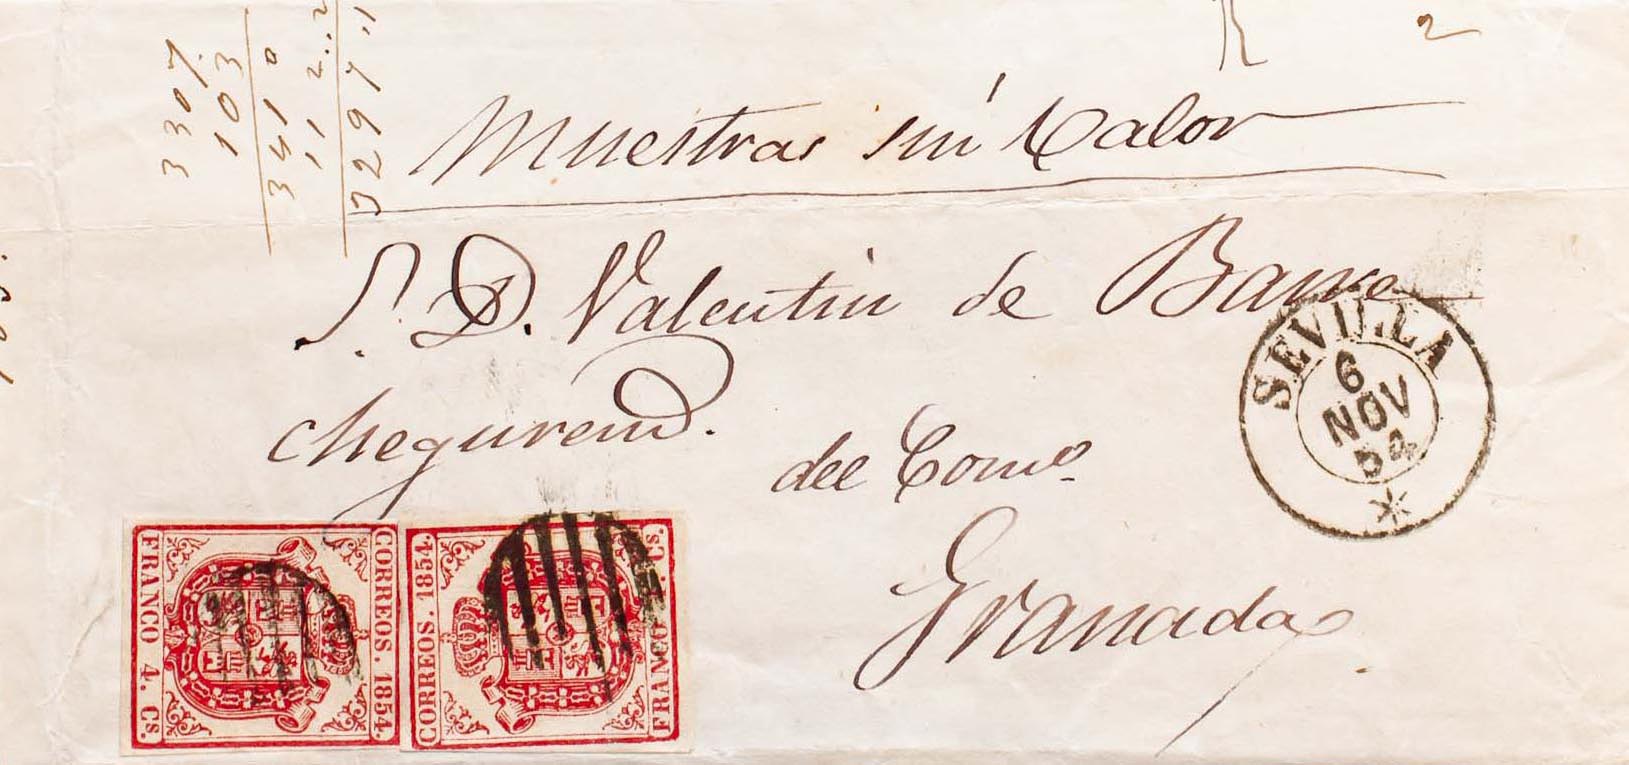 2
3307.
103
3410
112..2
3297.1
Muestras sin Valor
S. D. Valentin de Barre
chegurend.
del Com.º
Granada
SEVILLA
6
NOV
54
CORREOS. 1854.
FRANCO 4. Cs.
CORREOS. 1854.
FRANCO Cs.